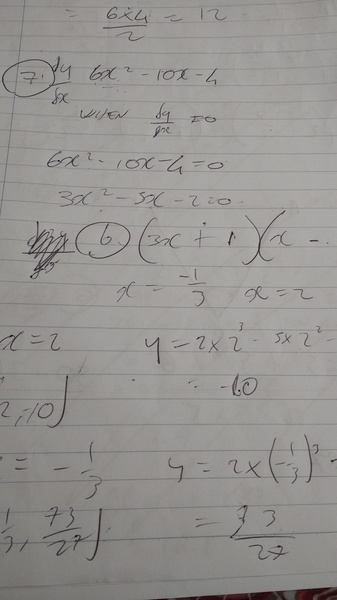 = 6x4/2 = 12
7. dy/dx 6x² - 10x - 4
WHEN dy/dx = 0
6x² - 10x - 4 = 0
3x² - 5x - 2 = 0
6. (3x + 1)(x -
x = -1/3 x = 2
x = 2 y = 2x2³ - 5x2² -
= -10
2, -10)
= -1/3 y = 2x(-1/3)³ -
1/3, 73/27) = 73/27